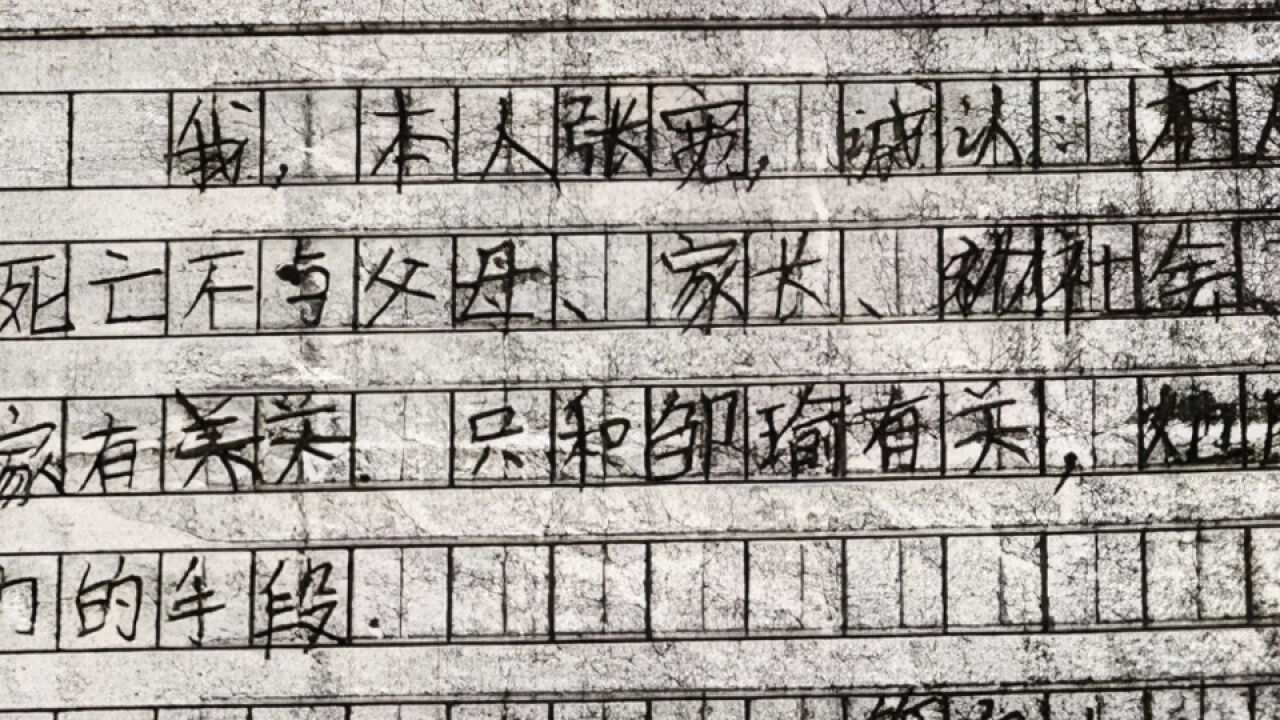 我,本人张宽,诚认:本人
死亡不与父母、家长、 社会
家有 关.只和邹瑜有关,她
的手段.